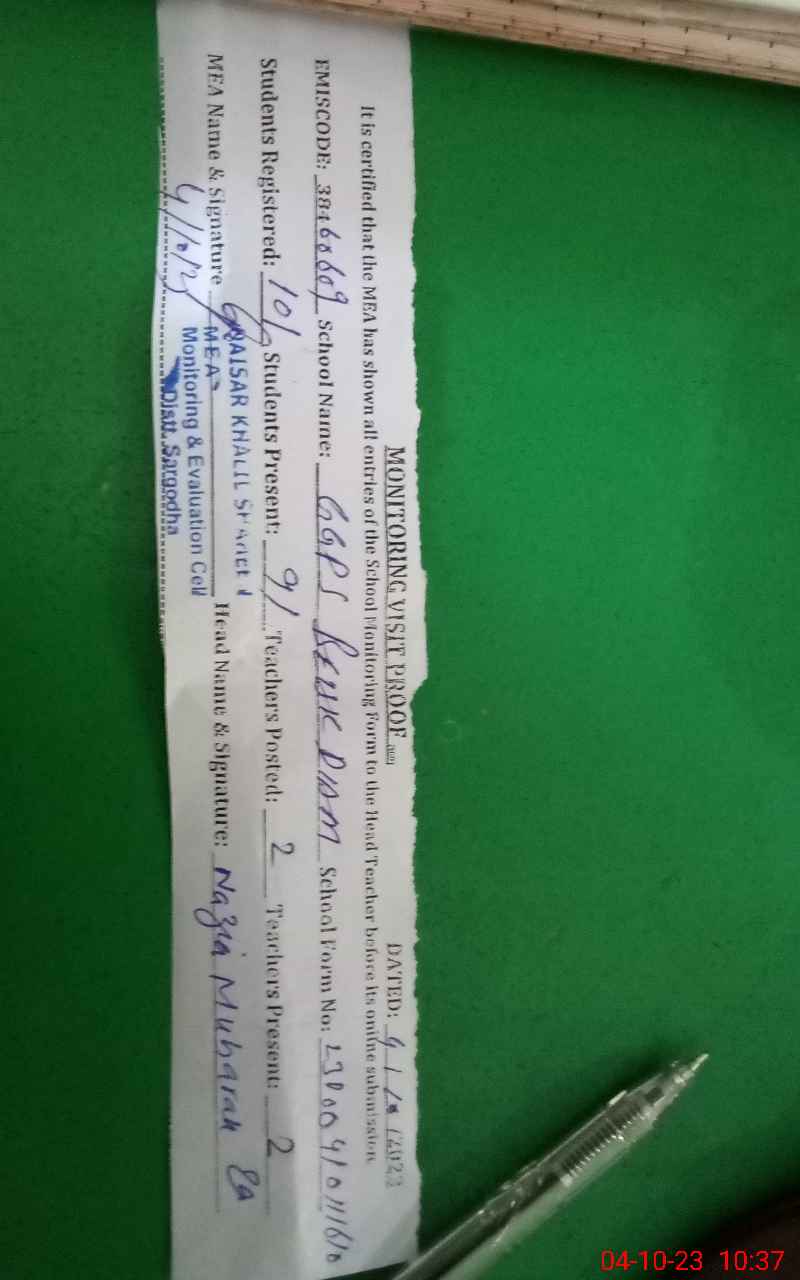 MONITORING VISIT PROOF DATED: 4/10/2023
It is certified that the MEA has shown all entries of the School Monitoring Form to the Head Teacher before its online submission.
EMISCODE: 38460609 School Name: GGPS School Form No:
Students Registered: 101 Students Present: 91 Teachers Posted: 2 Teachers Present: 2
MEA Name & Signature Head Name & Signature: Nazia Mubarak
QAISAR KHALIL
MEA
Monitoring & Evaluation Cell
Distt. Sargodha
4/10/23
04-10-23 10:37